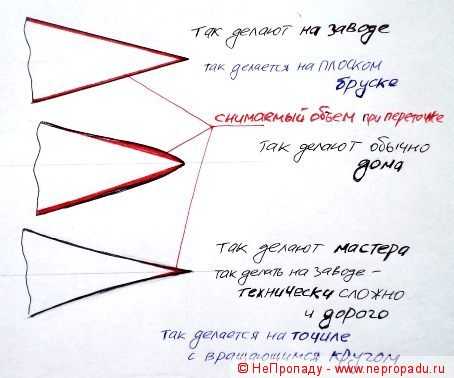 так делают на заводе
так делается на плоском
бруске
снимаемый объем при переточке
так делают обычно
дома
так делают мастера
так делать на заводе -
технически сложно
и дорого
так делается на точиле
с вращающимся кругом
© НеПропаду - www.nepropadu.ru